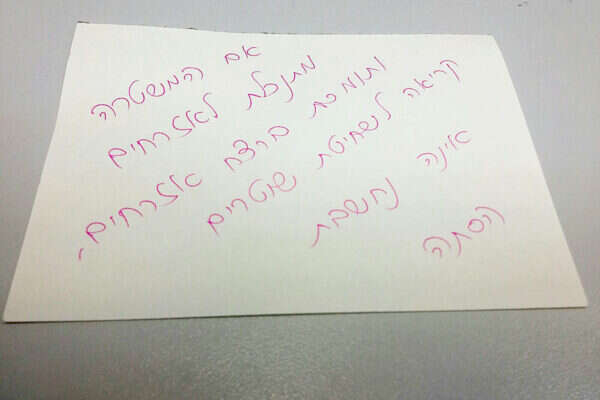 אם המשטרה
מתנכלת לאזרחים
ותומכת ברצח אזרחים,
קריאה לשחיטת שוטרים
אינה נחשבת
הסתה